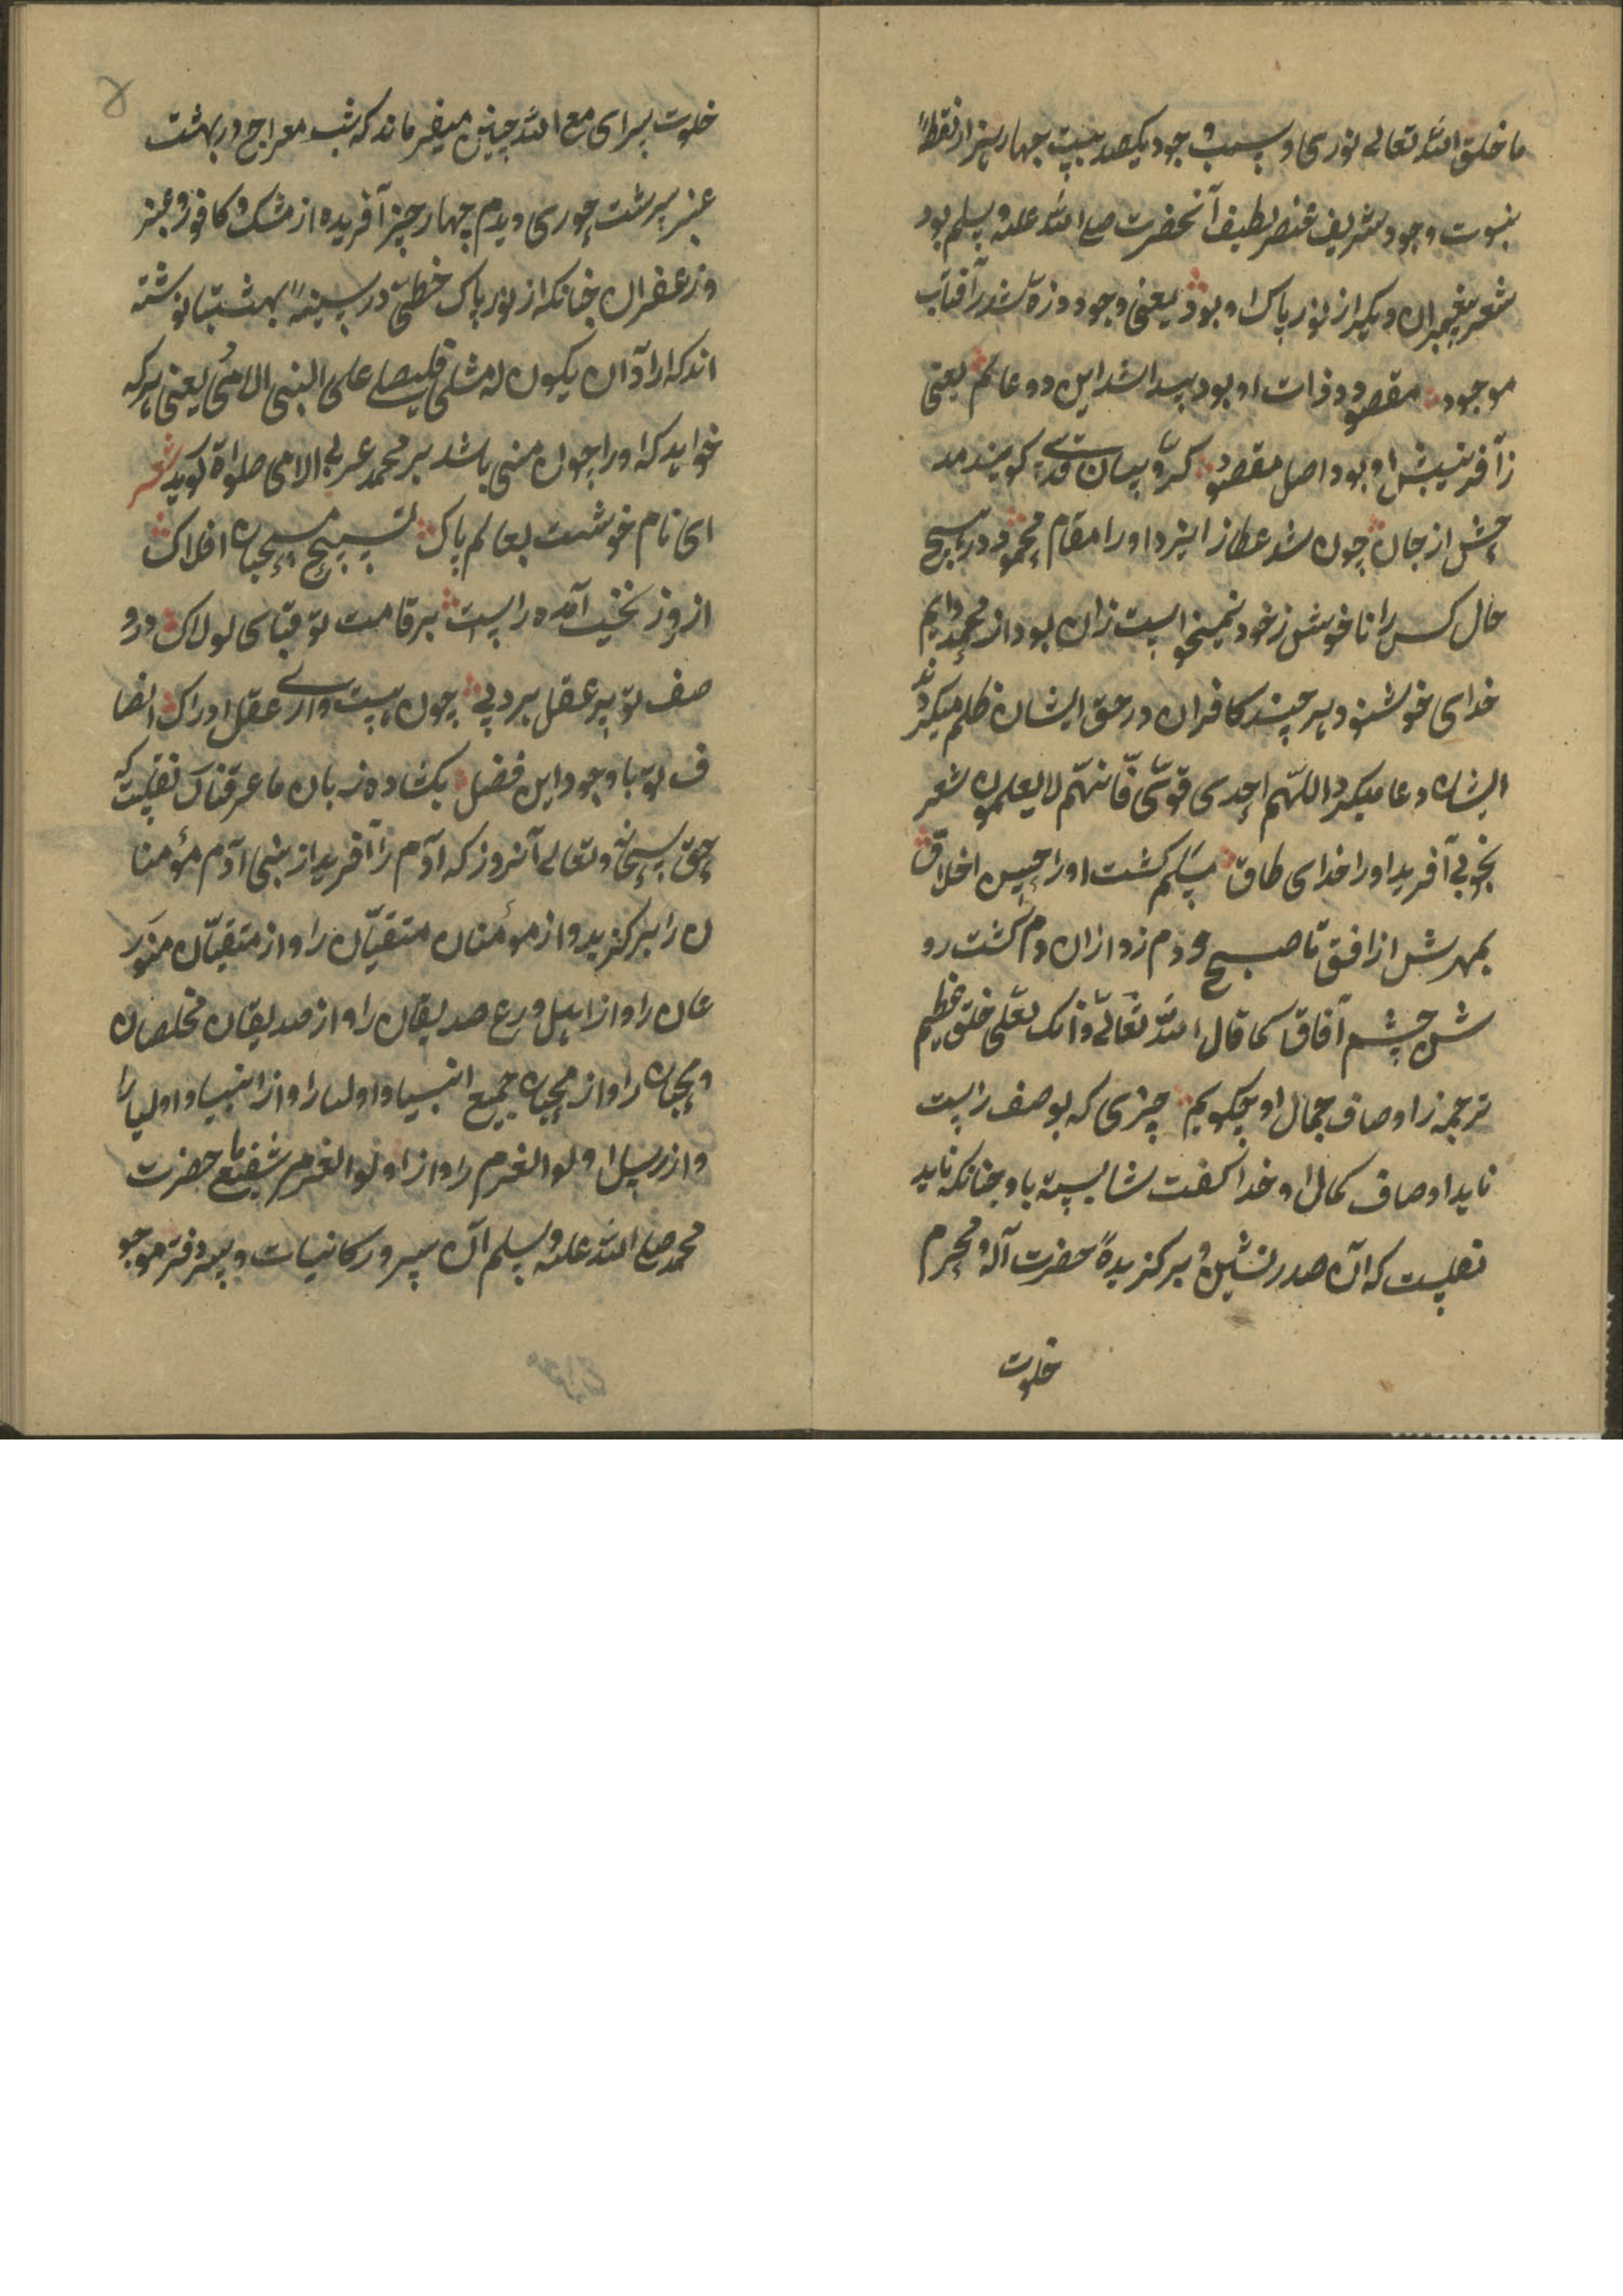 ما خلق الله تعالی نوری و سبب وجود یکصد بیست چهار هزار نقطهٔ
نبوت وجود شریف عنصر لطیف آنحضرت صلی الله علیه وسلم بود
شعر پیغمبران دیگر از نور پاک او بود یعنی وجود ذره شد ز آفتاب
موجود مقصود ذات او بود پیدا شد این دو عالم یعنی
ز آفرینش او بود اصل مقصود کروبیان قدسی گویند مد
حش از جان چون شد عطا ز ایزد او را مقام محمود در هیچ
حال کس را ناخوش ز خود نمیخواست زان بود از محمد دایم
خدای خوشنود هر چند کافران در حق ایشان ظلم میکردند
ایشان دعا میکرد اللّهم اهدی قومی فانّهم لا یعلمون شعر
بخوبی آفرید او را خدای طاق مسلم گشت او را حسن اخلاق
بمهرش از افق تا صبح دم زد از ان دم گشت رو
شن چشم آفاق کما قال الله تعالی وانک لعلی خلق عظیم
ترجمه ز اوصاف جمال او چگویم چیزی که بوصف راست
ناید اوصاف کمال او خدا گفت شایسته باو چنانکه باید
نقلست که آن صدر نشین و برگزیدهٔ حضرت آله و محرم
خلوت
خلوت سرای مع الله چنین میفرماند که شب معراج در بهشت
عنبر سرشت حوری دیدم چهار چیز آفریده از مشک و کافور و عنبر
و زعفران چنانکه از نور پاک خطی در سینهٔ بهشتیا نوشته
اند که اراد ان یکون له مثلی فلیصلی علی النبی الامی یعنی هر که
خواهد که او را چون منی باشد بر محمد عربی الامی صلواة گوید شعر
ای نام خوشت بعالم پاک تسبیح مسبحان افلاک
از روز نخست آمده راست بر قامت تو قبای لولاک در و
صف تو پر عقل برد پی چون هست ورای عقل ادراک انصا
ف تو با وجود این فضل بکشاده زبان ما عرفناک نقلست که
حق سبحانه وتعالی آنروز که آدم را آفرید از بنی آدم مؤمنا
ن را برگزید و از مؤمنان متقیان را و از متقیان متور
عان را و از اهل ورع صدیقان را و از صدیقان مخلصان
و محبان را و از محبان جمیع انبیا و اولیا را و از انبیا و اولیا را
و از رسل اولو العزم را و از اولو العزم شفیع ما حضرت
محمد صلی الله علیه وسلم آن سرور کانیات و سر دفتر موجو